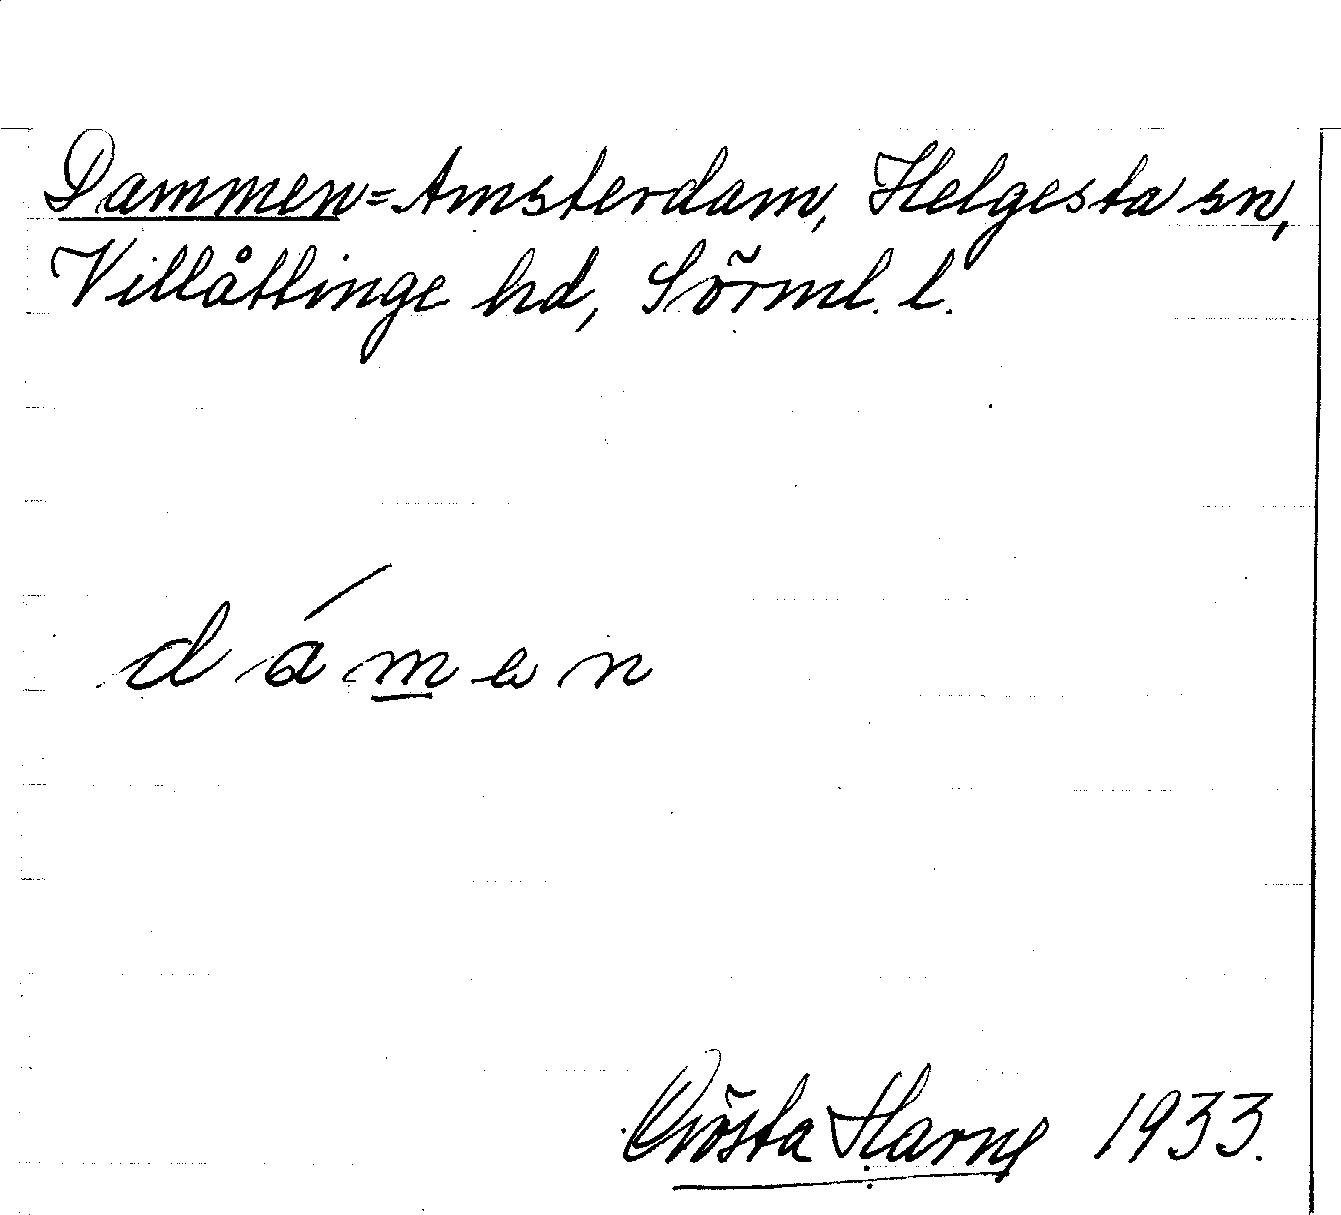 Dammen=Amsterdam, Helgesta sn,
Villåttinge hd, Sörml. l.
dámen
Gösta Harne 1933.